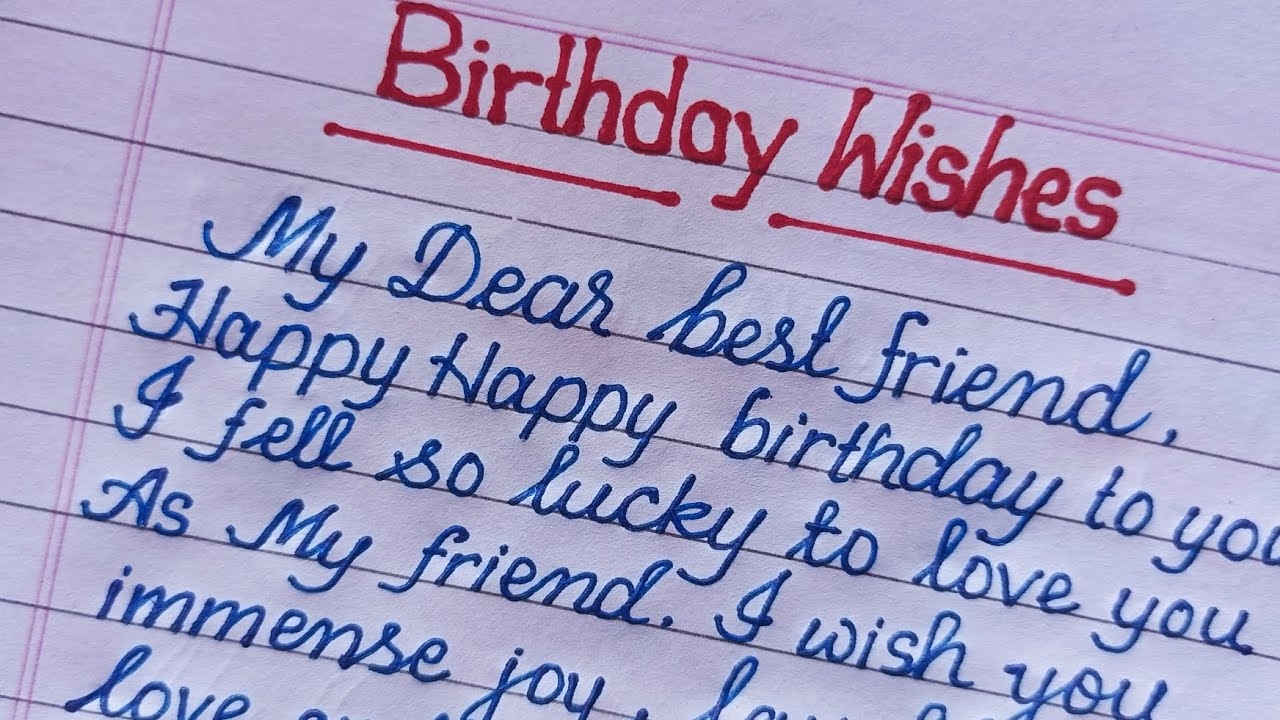 Birthday Wishes
My Dear best friend,
Happy Happy birthday to you
I fell so lucky to love you
As My friend. I wish you
immense joy,
love